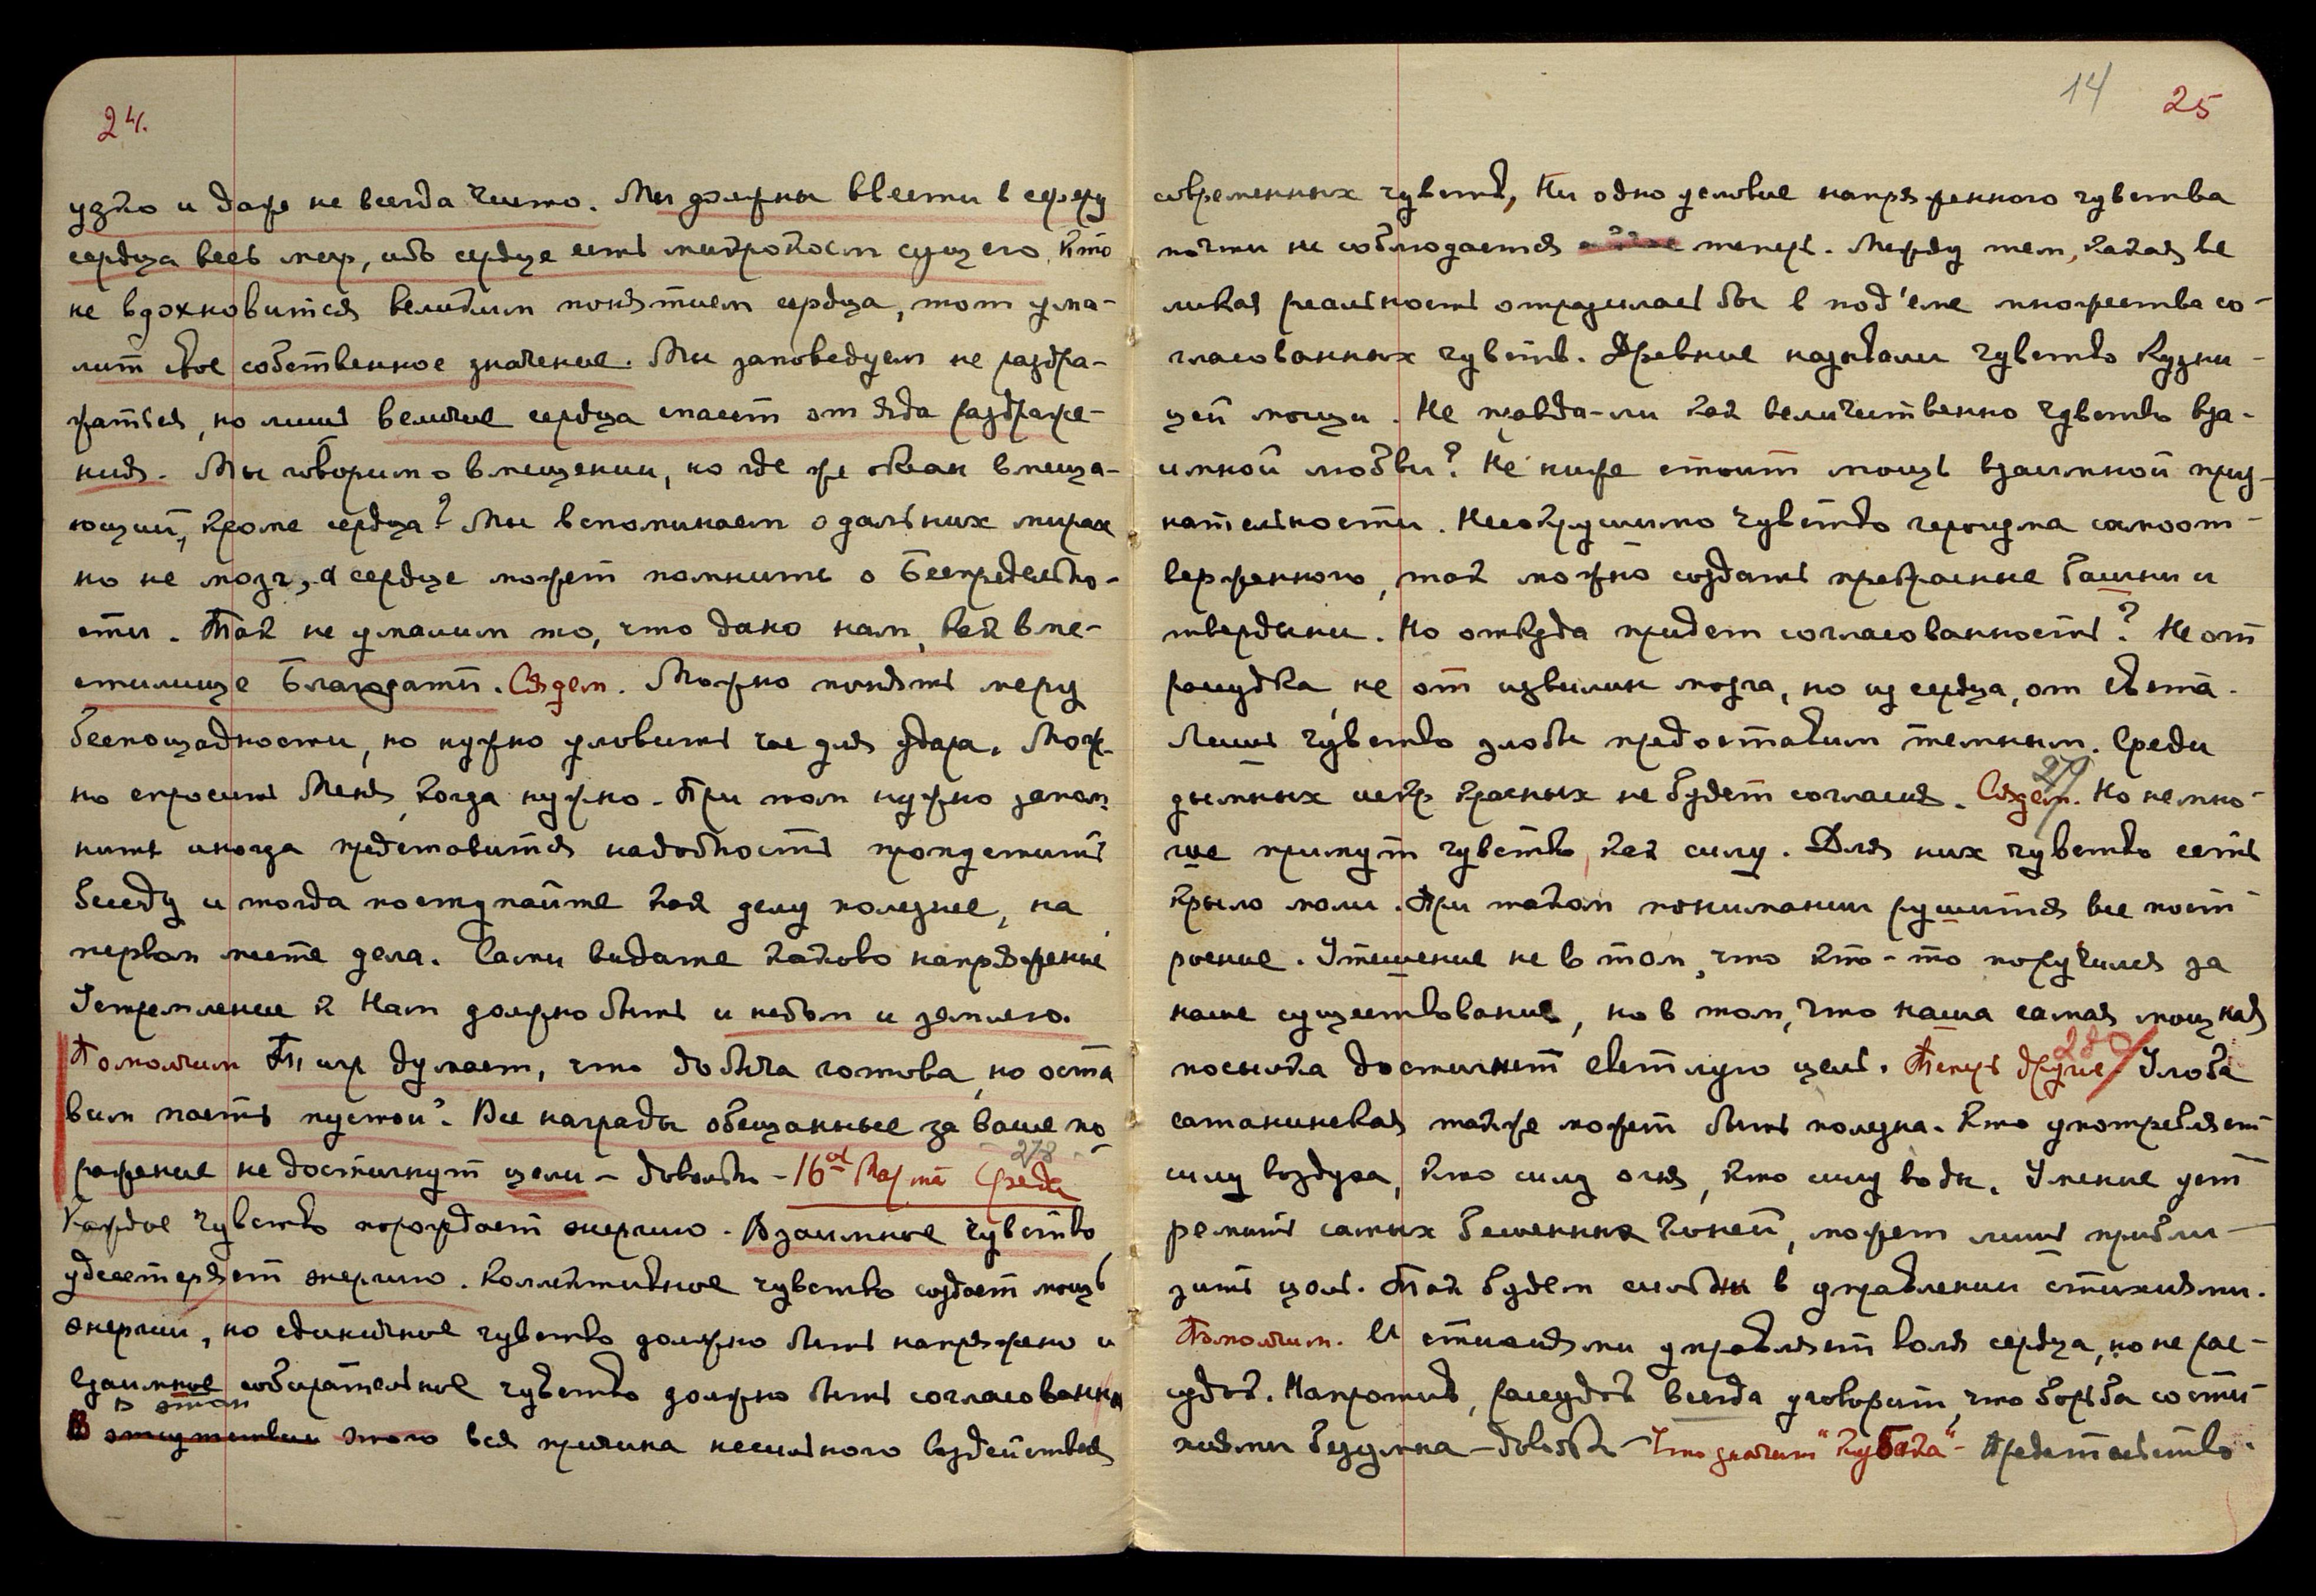 24.
узко и даже не всегда чисто. Мы должны ввести в сферу
сердца весь мир, ибо сердце есть микрокосм сущего. Кто
не вдохновится великим понятием сердца, тот ума-
лит свое собственное значение. Мы заповедуем не раздра-
жаться, но лишь величие сердца спасет от яда раздраже-
ния. Мы говорим о вмещении, но где же океан вмеща-
ющий, кроме сердца? Мы вспоминаем о дальних мирах
но не мозг, а сердце может помнить о Беспредельно-
сти. Так не умалим то, что дано нам, как вме-
стилище Благодати. Сядем. Можно понять меру
беспощадности, но нужно уловить час для удара. Мож-
но спросить Меня, когда нужно. При том нужно запом-
нить иногда представится надобность
беседу и тогда поступайте как делу полезнее, на
первом месте дела. Сами видите каково напряжение
Устремление к Нам должно быть и небом и землею.
Помолчим Тигр думает, что добыча готова, но оста
вим пасть пустой. Все награды обещанные за ваше по
ражение не достигнут цели – довольно – 16ое Марта Среда
278
Каждое чувство порождает энергию. Взаимное чувство
удесятеряет энергию. Коллективное чувство создает мощь
энергии, но единичное чувство должно быть напряжено и
взаимное собирательное чувство должно быть согласованно
в этом
В отсутствии этого вся причина несильного воздействия
14 25
современных чувств, Ни одно условие напряженного чувства
почти не соблюдается теперь. Между тем, какая ве
ликая реальность отразилась бы в под'еме множества со-
гласованных чувств. Древние называли чувство кузни-
цей мощи. Не правда-ли как величественно чувство вза-
имной любви? Не ниже стоит мощь взаимной приз-
нательности. Несокрушимо чувство героизма самоот-
верженного, так можно создать прекрасные башни и
твердыни. Но откуда придет согласованность? Не от
рассудка, не от извилин мозга, но из сердца, от света.
Лишь чувство злобы предоставим темным. Среди
дымных искр красных не будет согласия. Сядем. Но немно-
279
гие примут чувство, как силу. Для них чувство есть
крыло моли. При таком понимании рушится все пост
роение. Утешение не в том, что кто-то поручился за
наше существование, но в том, что наша самая мощная
посылка достигнет светлую цель. Теперь другие Злоба
280
сатанинская также может быть полезна. Кто употребляет
силу воздуха, кто силу огня, кто силу воды. Умение уст
ремить самых бешенных коней, может лишь прибли-
зить цель. Так будем сильны в управлении стихиями.
Помолчим. И стихиями управляет воля сердца, но не рас-
судок. Напротив, рассудок всегда уговорит, что борьба со сти
хиями безумна – довольно – Что значит "Кубака" – Предательство.